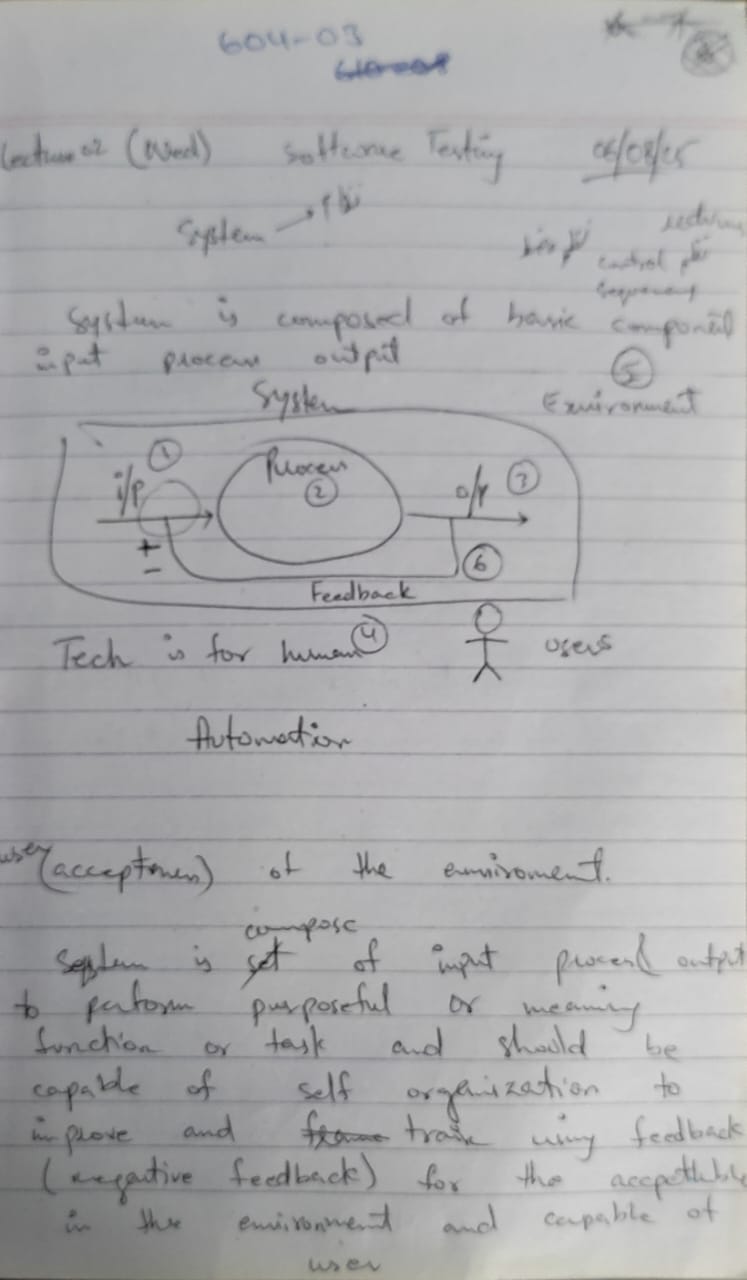 604-03
Lecture 02 (Wed) Software Testing 06/08/25
System → نظام
control نظم
System is composed of basic component
input process output
5
System Environment
1
i/p Process 2 o/p 3
+
-
6
Feedback
Tech is for human 4 users
Automation
user (acceptances) of the enviroment.
compose
System is set of input process output
to perform purposeful or meaning
function or task and should be
capable of self organization to
improve and train using feedback
(negative feedback) for the
in the environment and capable of
user